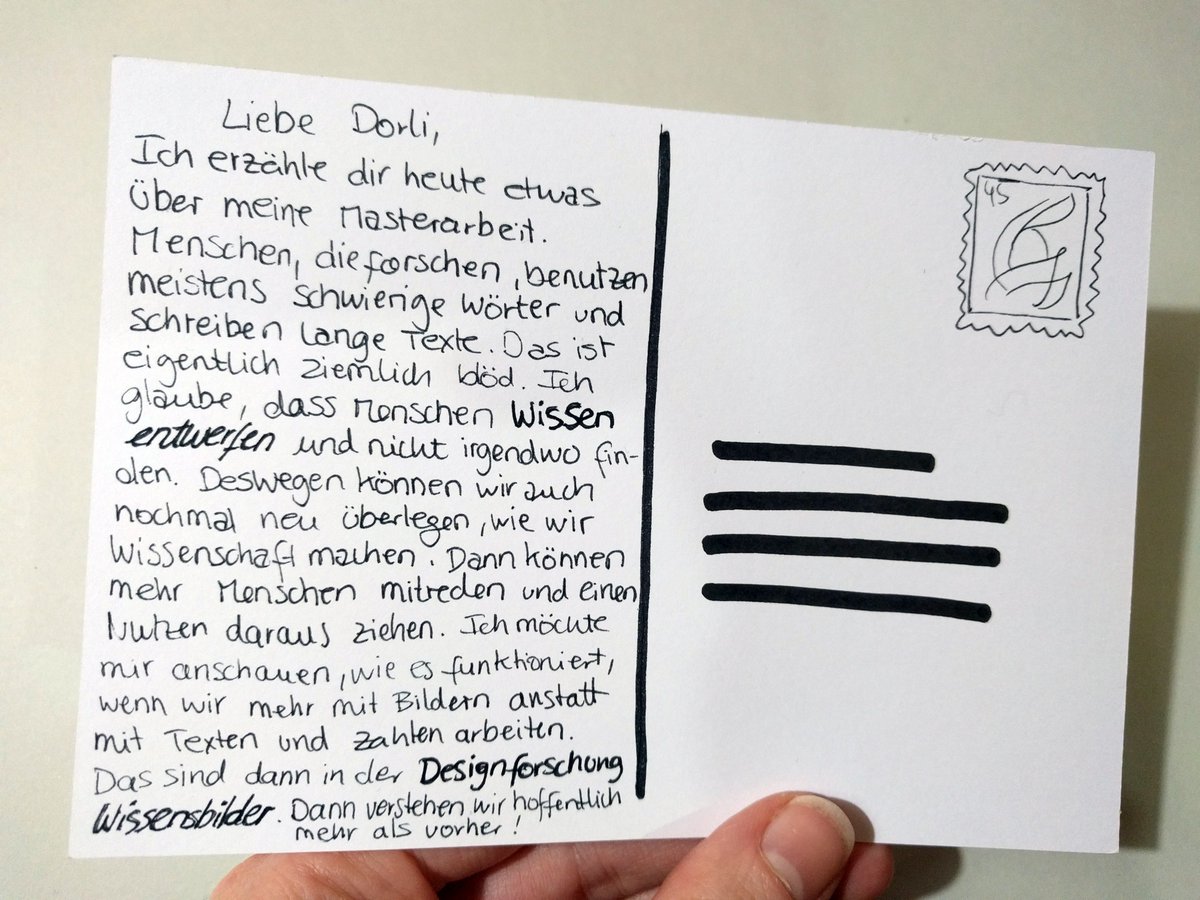 Liebe Dorli,
Ich erzähle dir heute etwas
über meine Masterarbeit.
Menschen, die forschen, benutzen
meistens schwierige Wörter und
schreiben lange Texte. Das ist
eigentlich ziemlich blöd. Ich
glaube, dass Menschen Wissen
entwerfen und nicht irgendwo fin-
den. Deswegen können wir auch
nochmal neu überlegen, wie wir
Wissenschaft machen. Dann können
mehr Menschen mitreden und einen
Nutzen daraus ziehen. Ich möchte
mir anschauen, wie es funktioniert,
wenn wir mehr mit Bildern anstatt
mit Texten und Zahlen arbeiten.
Das sind dann in der Designforschung
Wissensbilder. Dann verstehen wir hoffentlich
mehr als vorher!
45